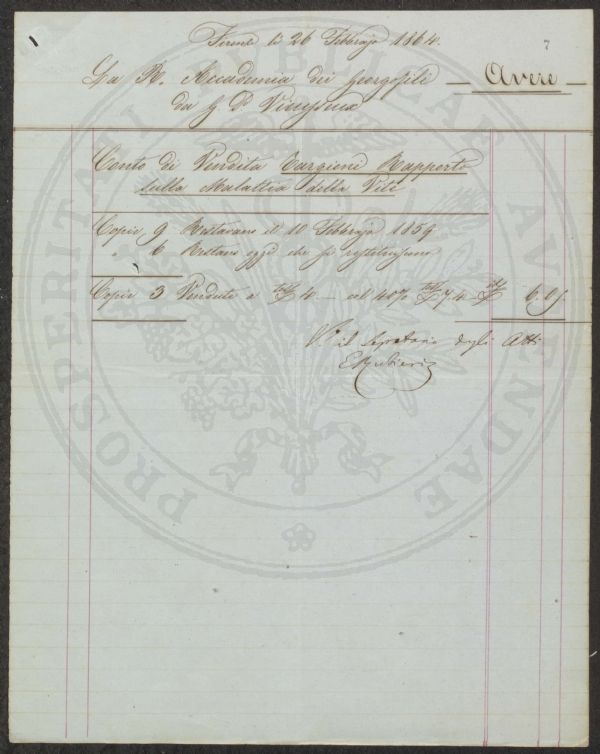 7
Firenze li 26 Febbrajo 1864.
La R. Accademia dei Georgofili — Avere —
da G. P. Vieusseux
Conto di Vendita Targioni Rapporto
sulla Malattia della Vite
Copie 9 Restavano il 10 Febbrajo 1859
" 6 Restano oggi che si restituiscono
Copie 3 Vendute a 4 — col 40% 7.4
V. il Segretario degli Atti
PROSPERITATI PUBLICAE AUGENDAE